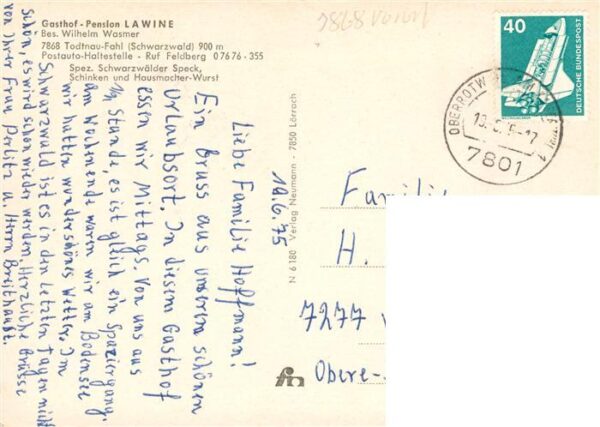 Gasthof - Pension LAWINE
Bes. Wilhelm Wasmer
7868 Todtnau-Fahl (Schwarzwald) 900 m
Postauto-Haltestelle - Ruf Feldberg 0 76 76 - 355
Spez. Schwarzwälder Speck,
Schinken und Hausmacher-Wurst
19.6.75
Liebe Familie Hoffmann!
Ein Gruss aus unserem schönen
Urlaubsort. In diesem Gasthof
essen wir Mittags. Von uns aus
1/4 Stunde, es ist gleich ein Spaziergang.
am Wochenende waren wir am Bodensee
wir hatten wunderschönes Wetter. Im
Schwarzwald ist es in den letzten Tagen nicht
schön, es wird schon wieder werden. Herzliche Grüsse
von Ihrer Frau Perlitz u. Herrn Breithaupt.
N 6180 Verlag Neumann - 7850 Lörrach
40
DEUTSCHE BUNDESPOST
7801
Familie
H.
7277
Obere-
7868